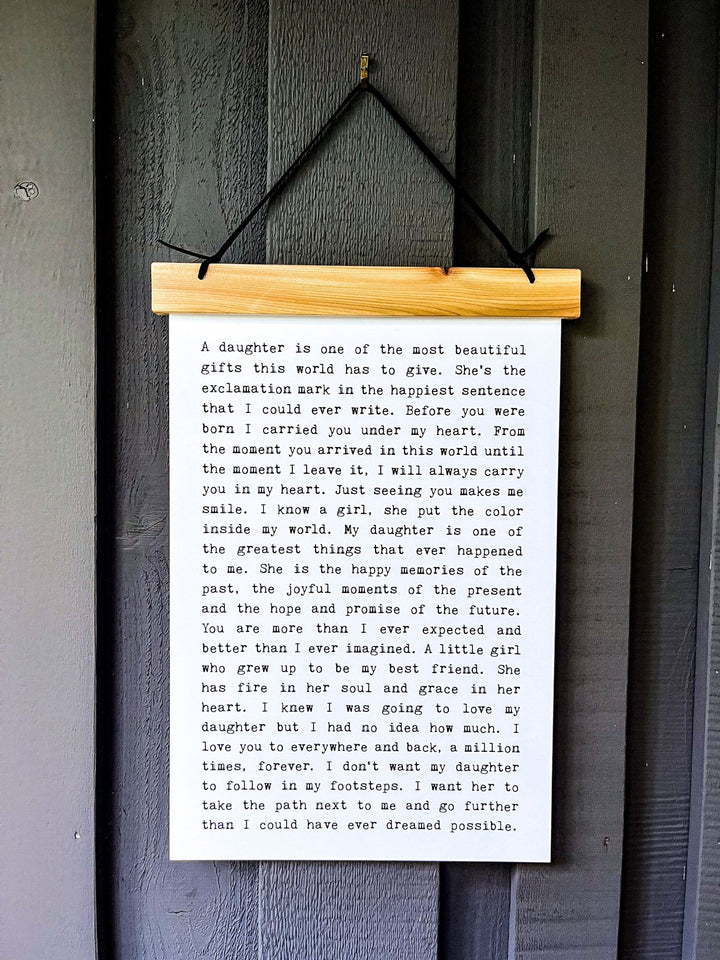 A daughter is one of the most beautiful
gifts this world has to give. She's the
exclamation mark in the happiest sentence
that I could ever write. Before you were
born I carried you under my heart. From
the moment you arrived in this world until
the moment I leave it, I will always carry
you in my heart. Just seeing you makes me
smile. I know a girl, she put the color
inside my world. My daughter is one of
the greatest things that ever happened
to me. She is the happy memories of the
past, the joyful moments of the present
and the hope and promise of the future.
You are more than I ever expected and
better than I ever imagined. A little girl
who grew up to be my best friend. She
has fire in her soul and grace in her
heart. I knew I was going to love my
daughter but I had no idea how much. I
love you to everywhere and back, a million
times, forever. I don't want my daughter
to follow in my footsteps. I want her to
take the path next to me and go further
than I could have ever dreamed possible.